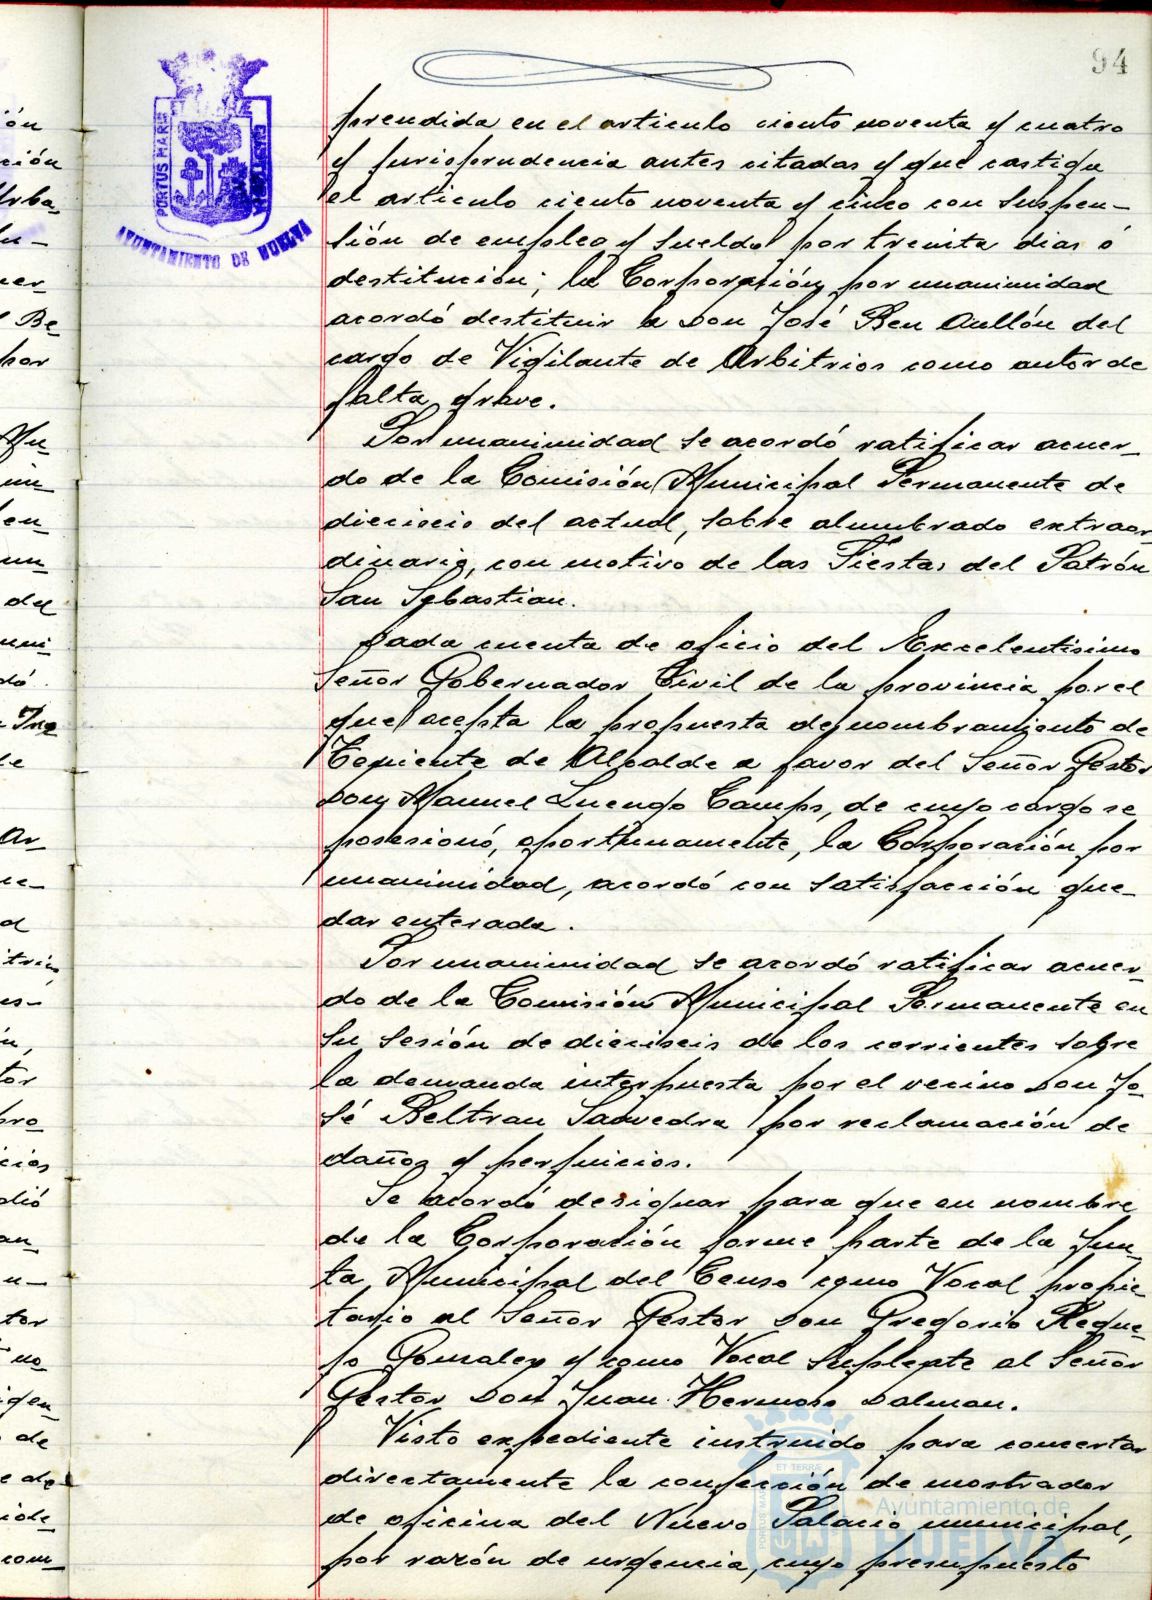 94
PORTUS MARIS
ET
AYUNTAMIENTO DE HUELVA
prendida en el articulo ciento noventa y cuatro
y jurisprudencia antes citadas y que castiga
el articulo ciento noventa y cinco con suspen-
sión de empleo y sueldo por treinta dias ó
destitución; la Corporación por unanimidad
acordó destituir a Don José Ben Aullón del
cargo de Vigilante de Arbitrios como autor de
falta grave.
Por unanimidad se acordó ratificar acuer-
do de la Comisión Municipal Permanente de
dieciseis del actual, sobre alumbrado extraor
dinario, con motivo de las Fiestas del Patrón
San Sebastian.
Dada cuenta de oficio del Excelentisimo
Señor Gobernador Civil de la provincia por el
que acepta la propuesta de nombramiento de
Teniente de Alcalde a favor del Señor Gestor
Don Manuel Luengo Camps, de cuyo cargo se
posesionó, oportunamente, la Corporación por
unanimidad, acordó con satisfacción que-
dar enterada.
Por unanimidad se acordó ratificar acuer-
do de la Comisión Municipal Permanente en
su sesión de dieciseis de los corrientes sobre
la demanda interpuesta por el vecino Don Jo-
sé Beltran Saavedra por reclamación de
daños y perjuicios.
Se acordó designar para que en nombre
de la Corporación forme parte de la Jun-
ta Municipal del Censo como Vocal propie-
tario al Señor Gestor Don Gregorio Reque-
jo Gonzalez y como Vocal Suplente al Señor
Gestor Don Juan Hermoso Dalman.
Visto expediente instruido para concertar
directamente la confección de mostrador
de oficina del Nuevo Palacio municipal,
por razón de urgencia, cuyo presupuesto
ET TERRÆ
Ayuntamiento de
HUELVA